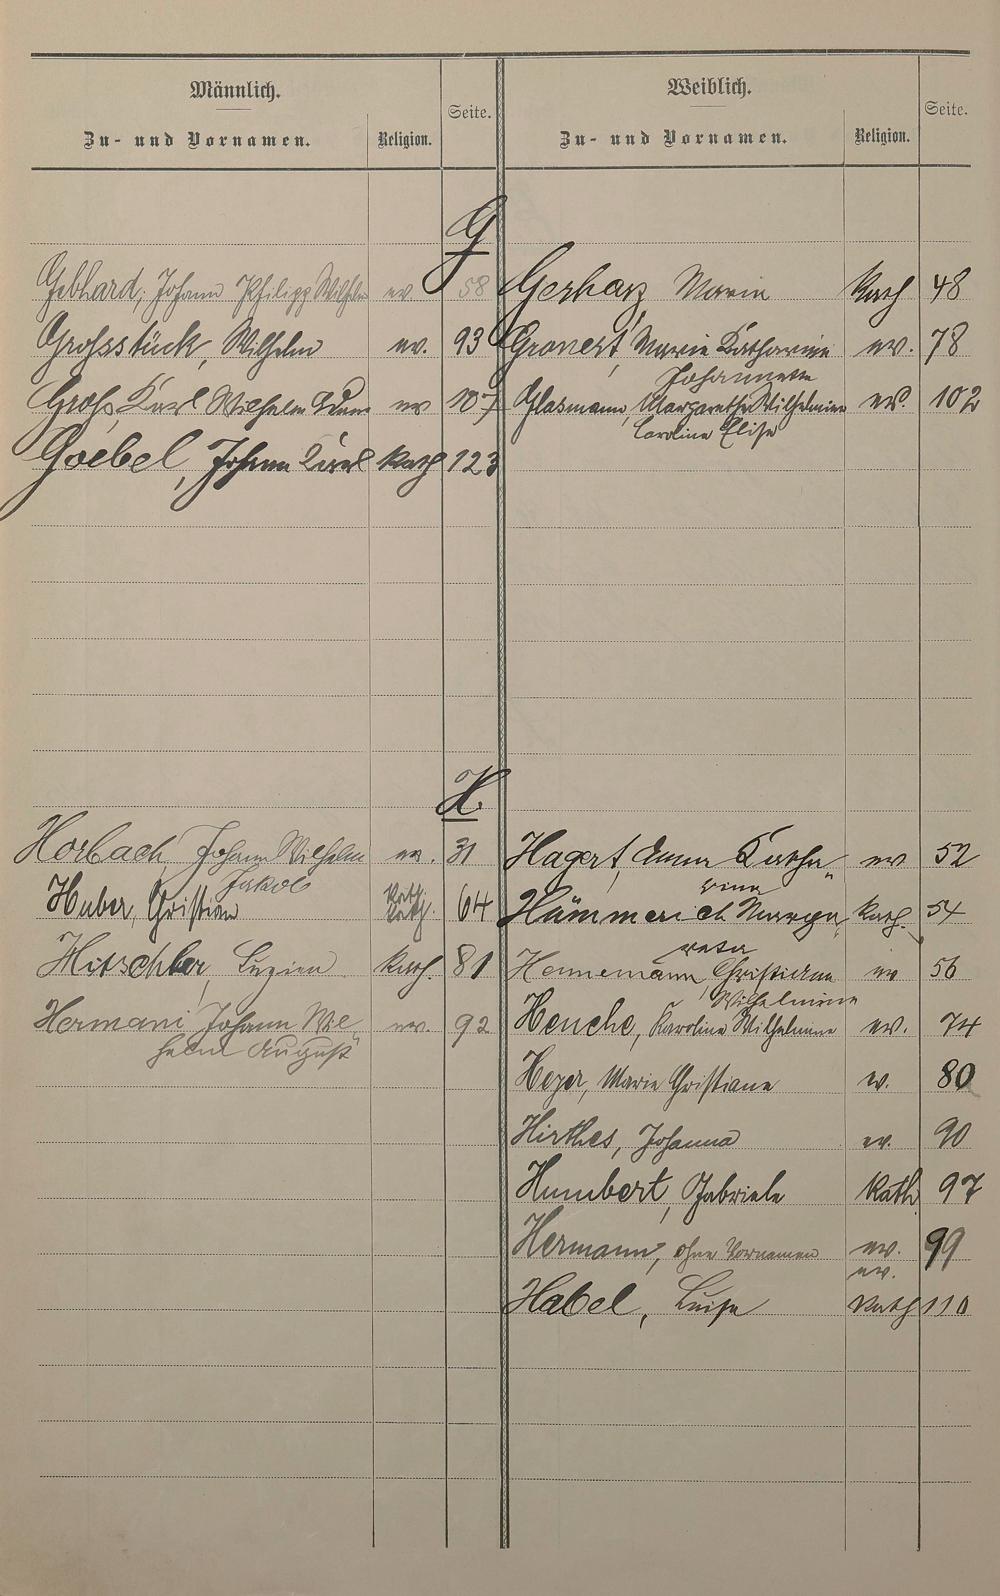 Männlich. Weiblich.
Zu- und Vornamen. Religion. Seite. Zu- und Vornamen. Religion. Seite.
G
Gebhard, Johann Philipp Wilhelm ev 58 Gerharz Maria Kath 48
Grossstück, Wilhelm ev. 93 Gronert, Marie Katharine ev. 78
Johannette
Groß, Karl Wilhelm ev 107 Glasmann, Margarethe Wilhelmine ev. 102
Caroline Elise
Goebel, Johann Karl Kath 123
H.
Horbach, Johann Wilhelm ev. 31 Hagert, Anna Katha„ ev 52
Jakob rina
Huber, Christian Kath. 64 Hämmerich Marga„ Kath. 54
reta
Hitschler, Luzien Kath. 81 Hennemann, Christiane ev 56
Wilhelmine
Hermani Johann Wil„ ev. 92 Henche, Karoline Wilhelmine ev. 74
helm August
Heyer, Marie Christiane ev. 80
Hirthes, Johanna ev. 90
Humbert, Gabriele Kath. 97
Hermann, ohne Vornamen ev. 99
ev.
Habel, Luise Kath 110